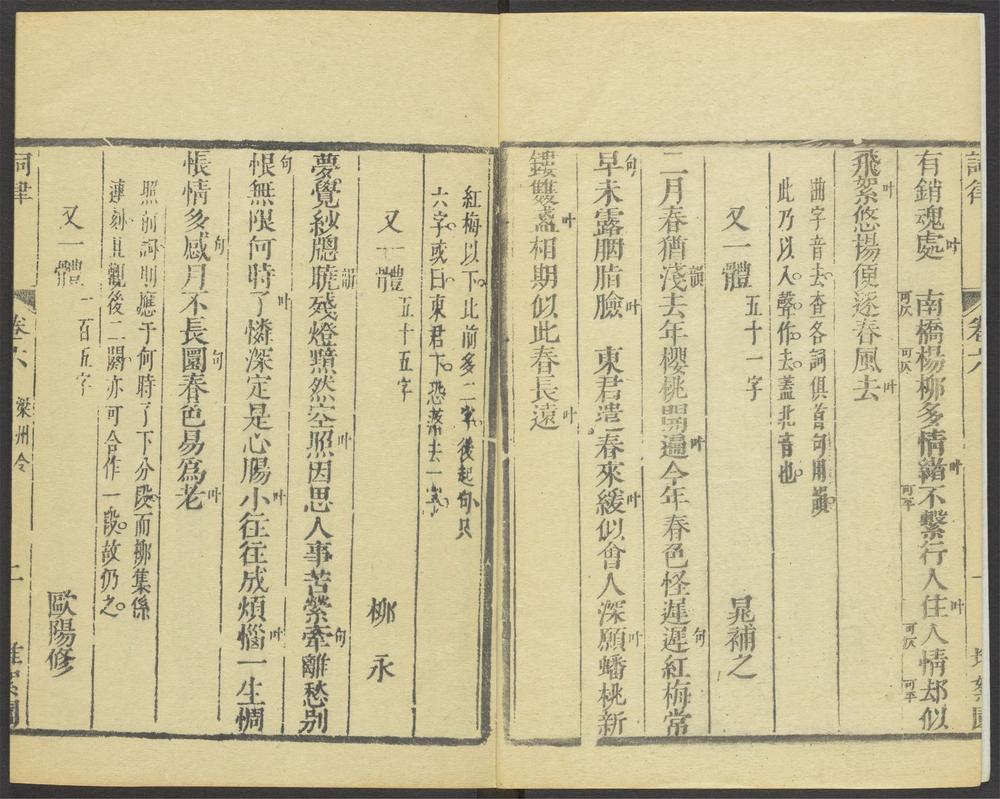 詞律 卷六 一 堆絮園
有銷魂處叶 南橋楊柳多情緒叶不繫行人住叶人情却似
飛絮叶悠揚便逐春風去叶
曲字音去查各詞俱首句用韻
此乃以入聲作去蓋北音也
又一體 五十一字 晁補之
二月春猶淺韻去年櫻桃開遍叶今年春色怪遲遲句紅梅常
早句未露胭脂臉叶 東君遣春來緩叶似會人深願叶蟠桃新
鏤雙盞叶相期似此春長遠叶
紅梅以下比前多二字後起句只
六字或曰東君下恐落去一字
又一體 五十五字 柳永
夢覺紗牕曉韻殘燈黯然空照叶因思人事苦縈牽句離愁別
恨句無限何時了叶憐深定是心腸小叶往往成煩惱叶一生惆
悵情多感句月不長圓句春色易爲老叶
照前詞則應于何時了下分段而柳集係
連刻且觀後二闋亦可合作一段故仍之
又一體 一百五字 歐陽修
詞律 卷六 梁州令 二 堆絮園